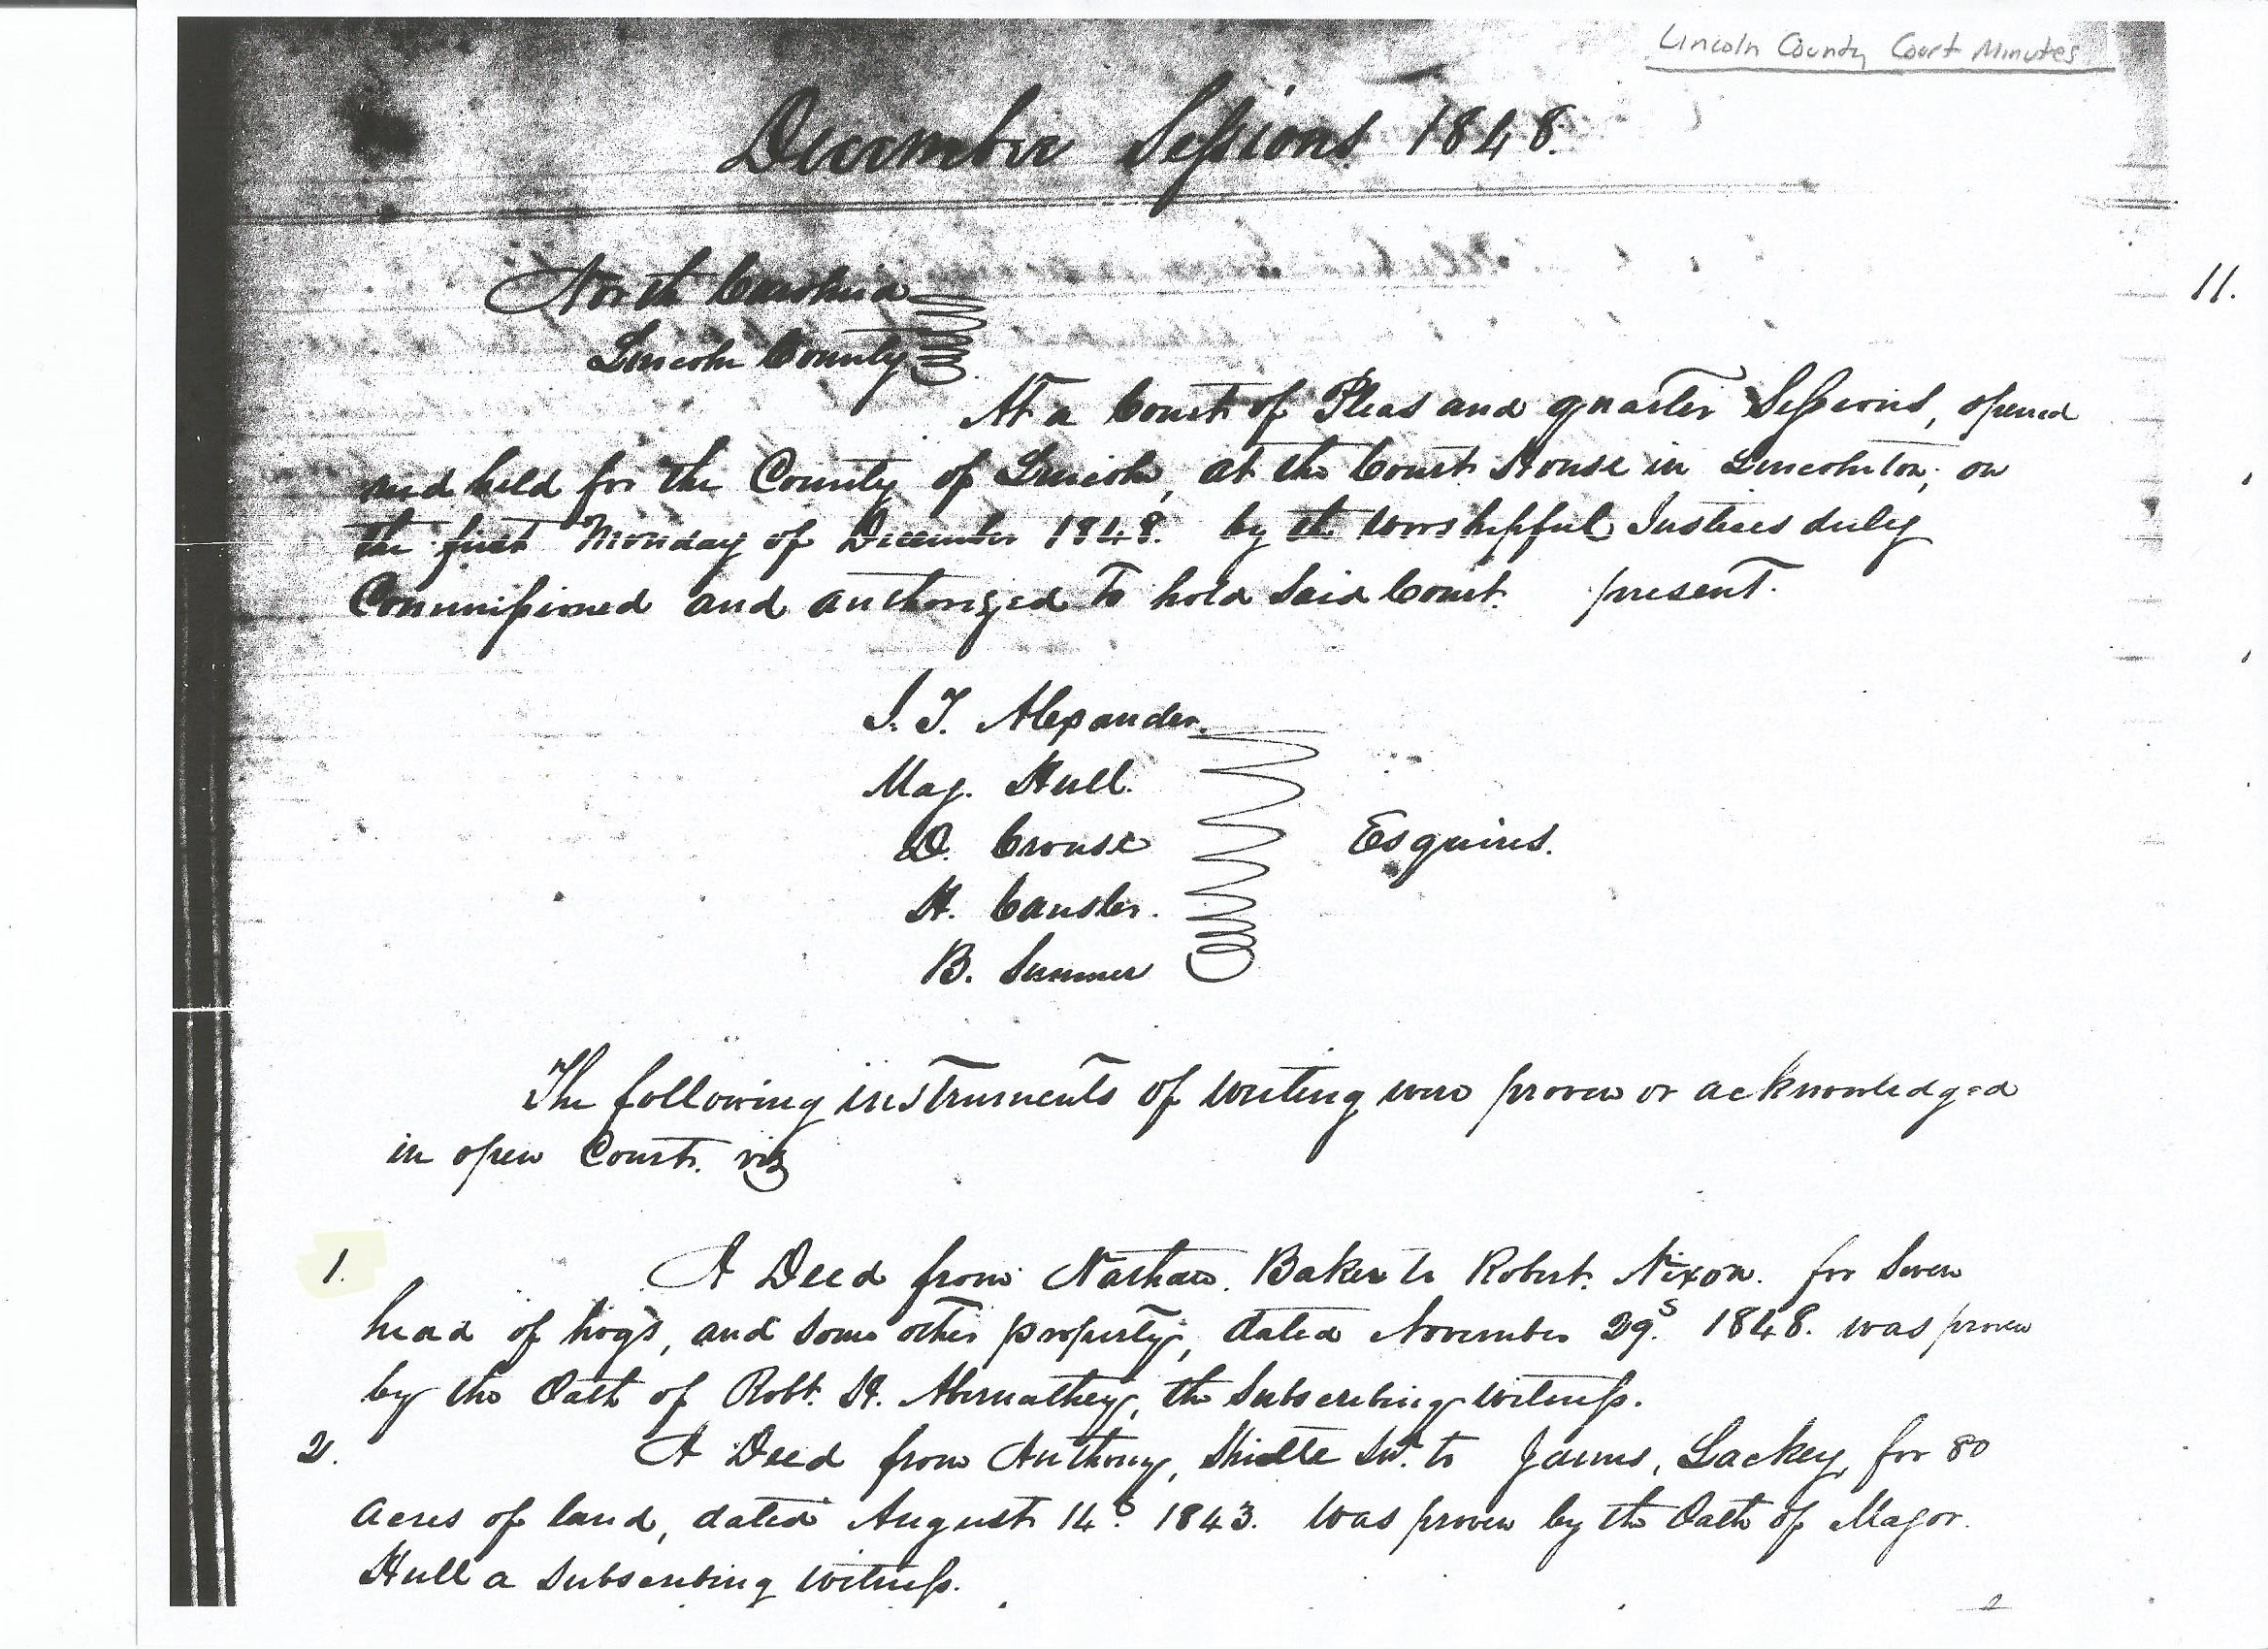 Lincoln County Court Minutes
December Sessions 1848.
North Carolina
Lincoln County
11.
At a Court of Pleas and quarter Sessions, opened
and held for the County of Lincoln, at the Court House in Lincolnton, on
the first Monday of December 1848. by the worshipful Justices duly
Commissioned and authorized to hold said Court. present.
J. T. Alexander.
Maj. Hull.
D. Crouse
H. Cansler.
B. Summer
Esquires.
The following instruments of writing were proven or acknowledged
in open Court. viz
1. A Deed from Nathan Baker to Robert Nixon. for seven
head of hogs, and some other property, dated November 29. 1848. was proven
by the Oath of Robt. H. Abernathey, the Subscribing witness.
2. A Deed from Anthony, to James, Lackey, for 80
acres of land, dated August 14 1843. was proven by the Oath of Major.
Hull a subscribing witness.
2